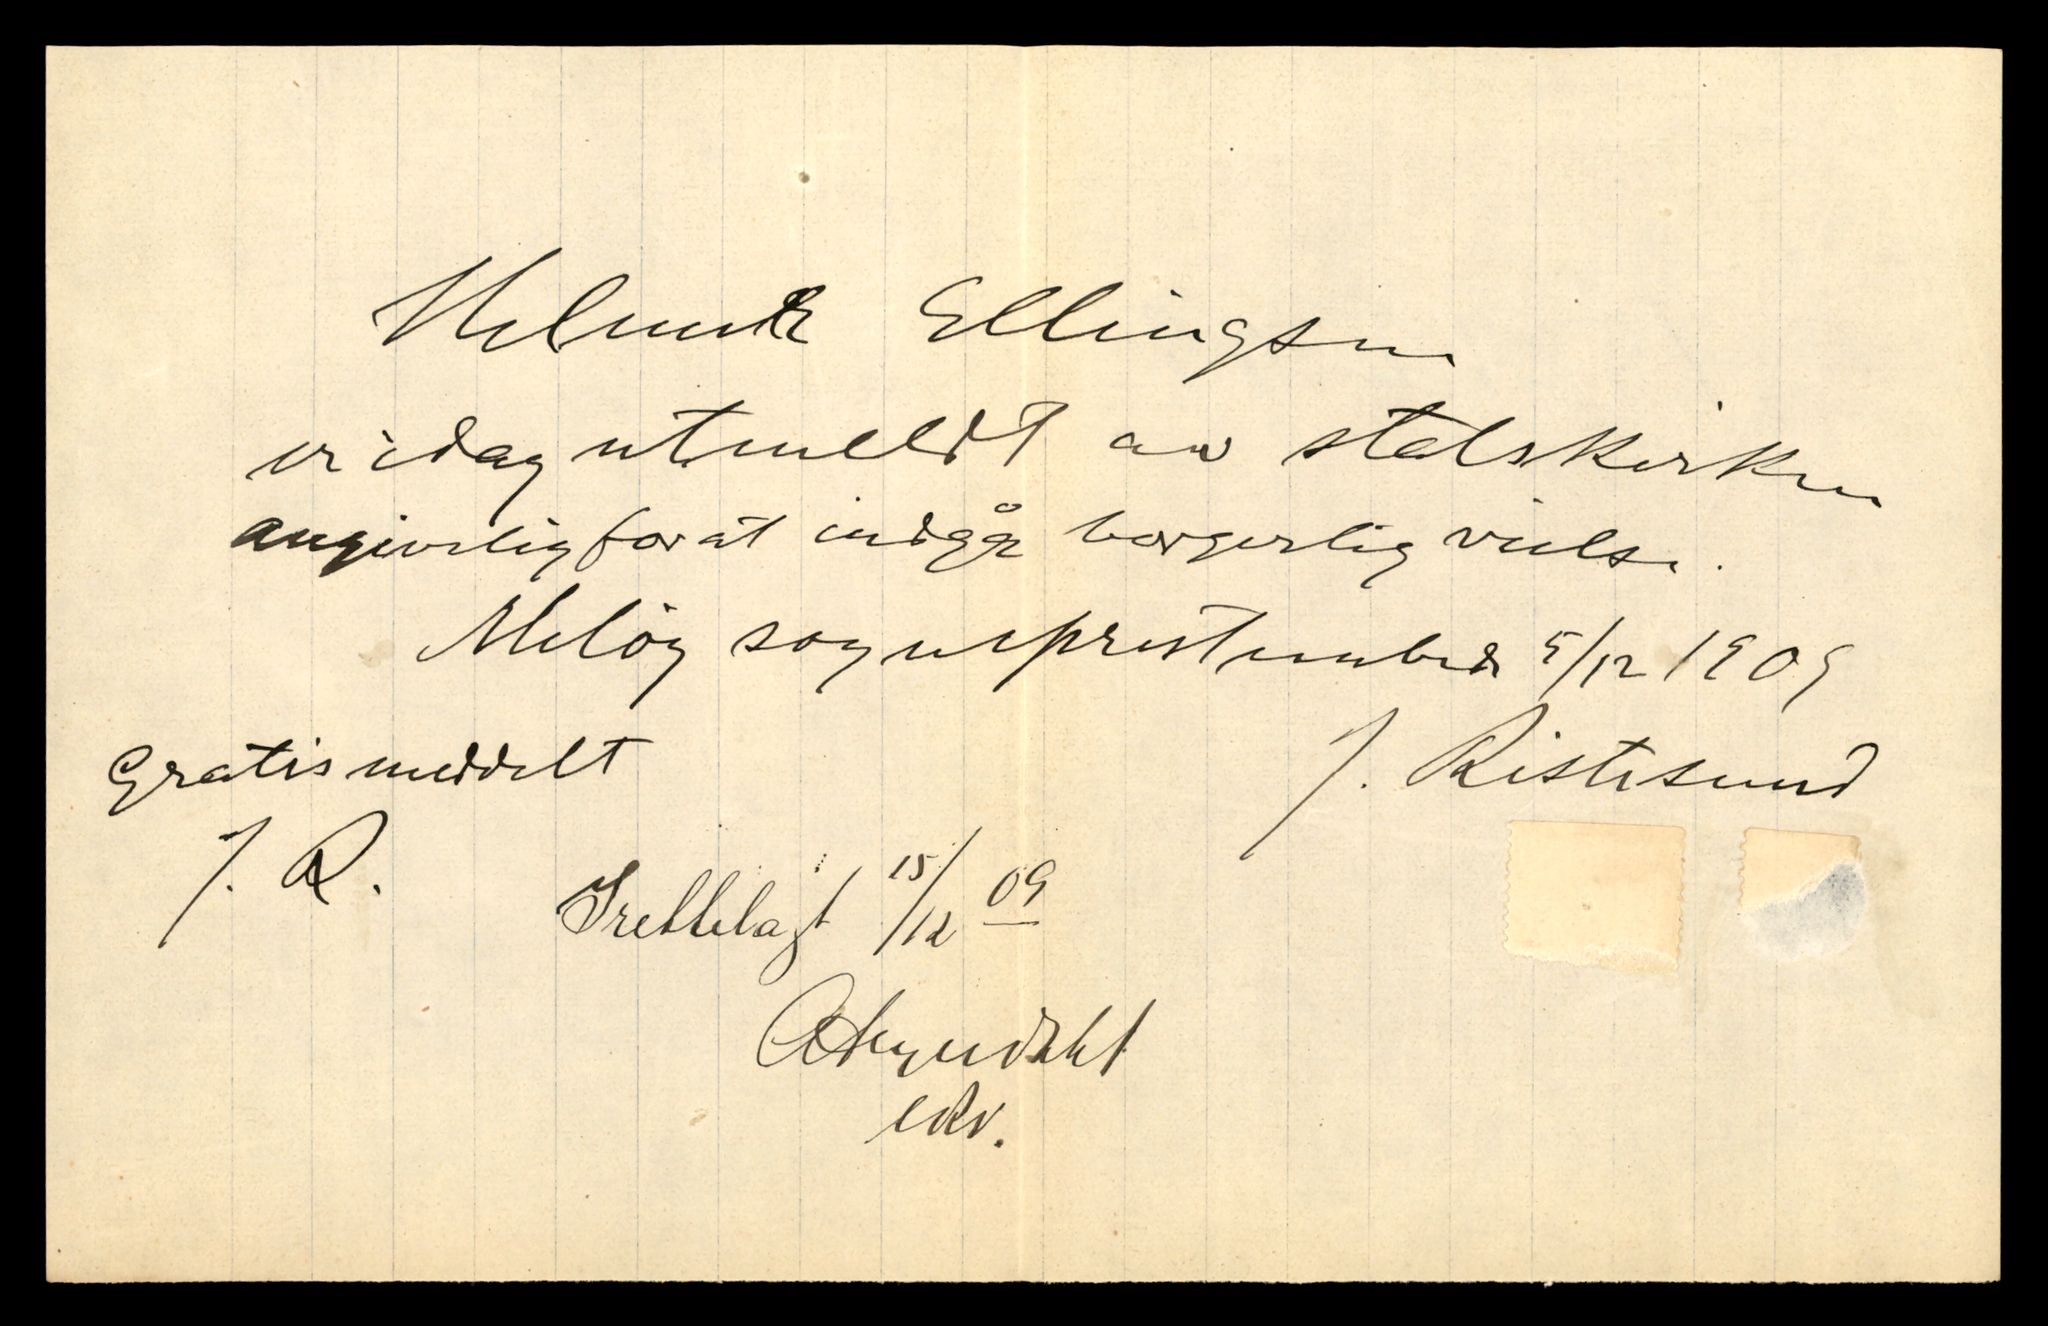 Helmer Ellingsen
er idag utmeldt av statskirken
angivelig for at indgå borgerlig vielse.
Meløy sogneprestembede 5/12 1909
J. Ristesund
Gratis meddelt
J. R.
Fremlagt 15/12 09